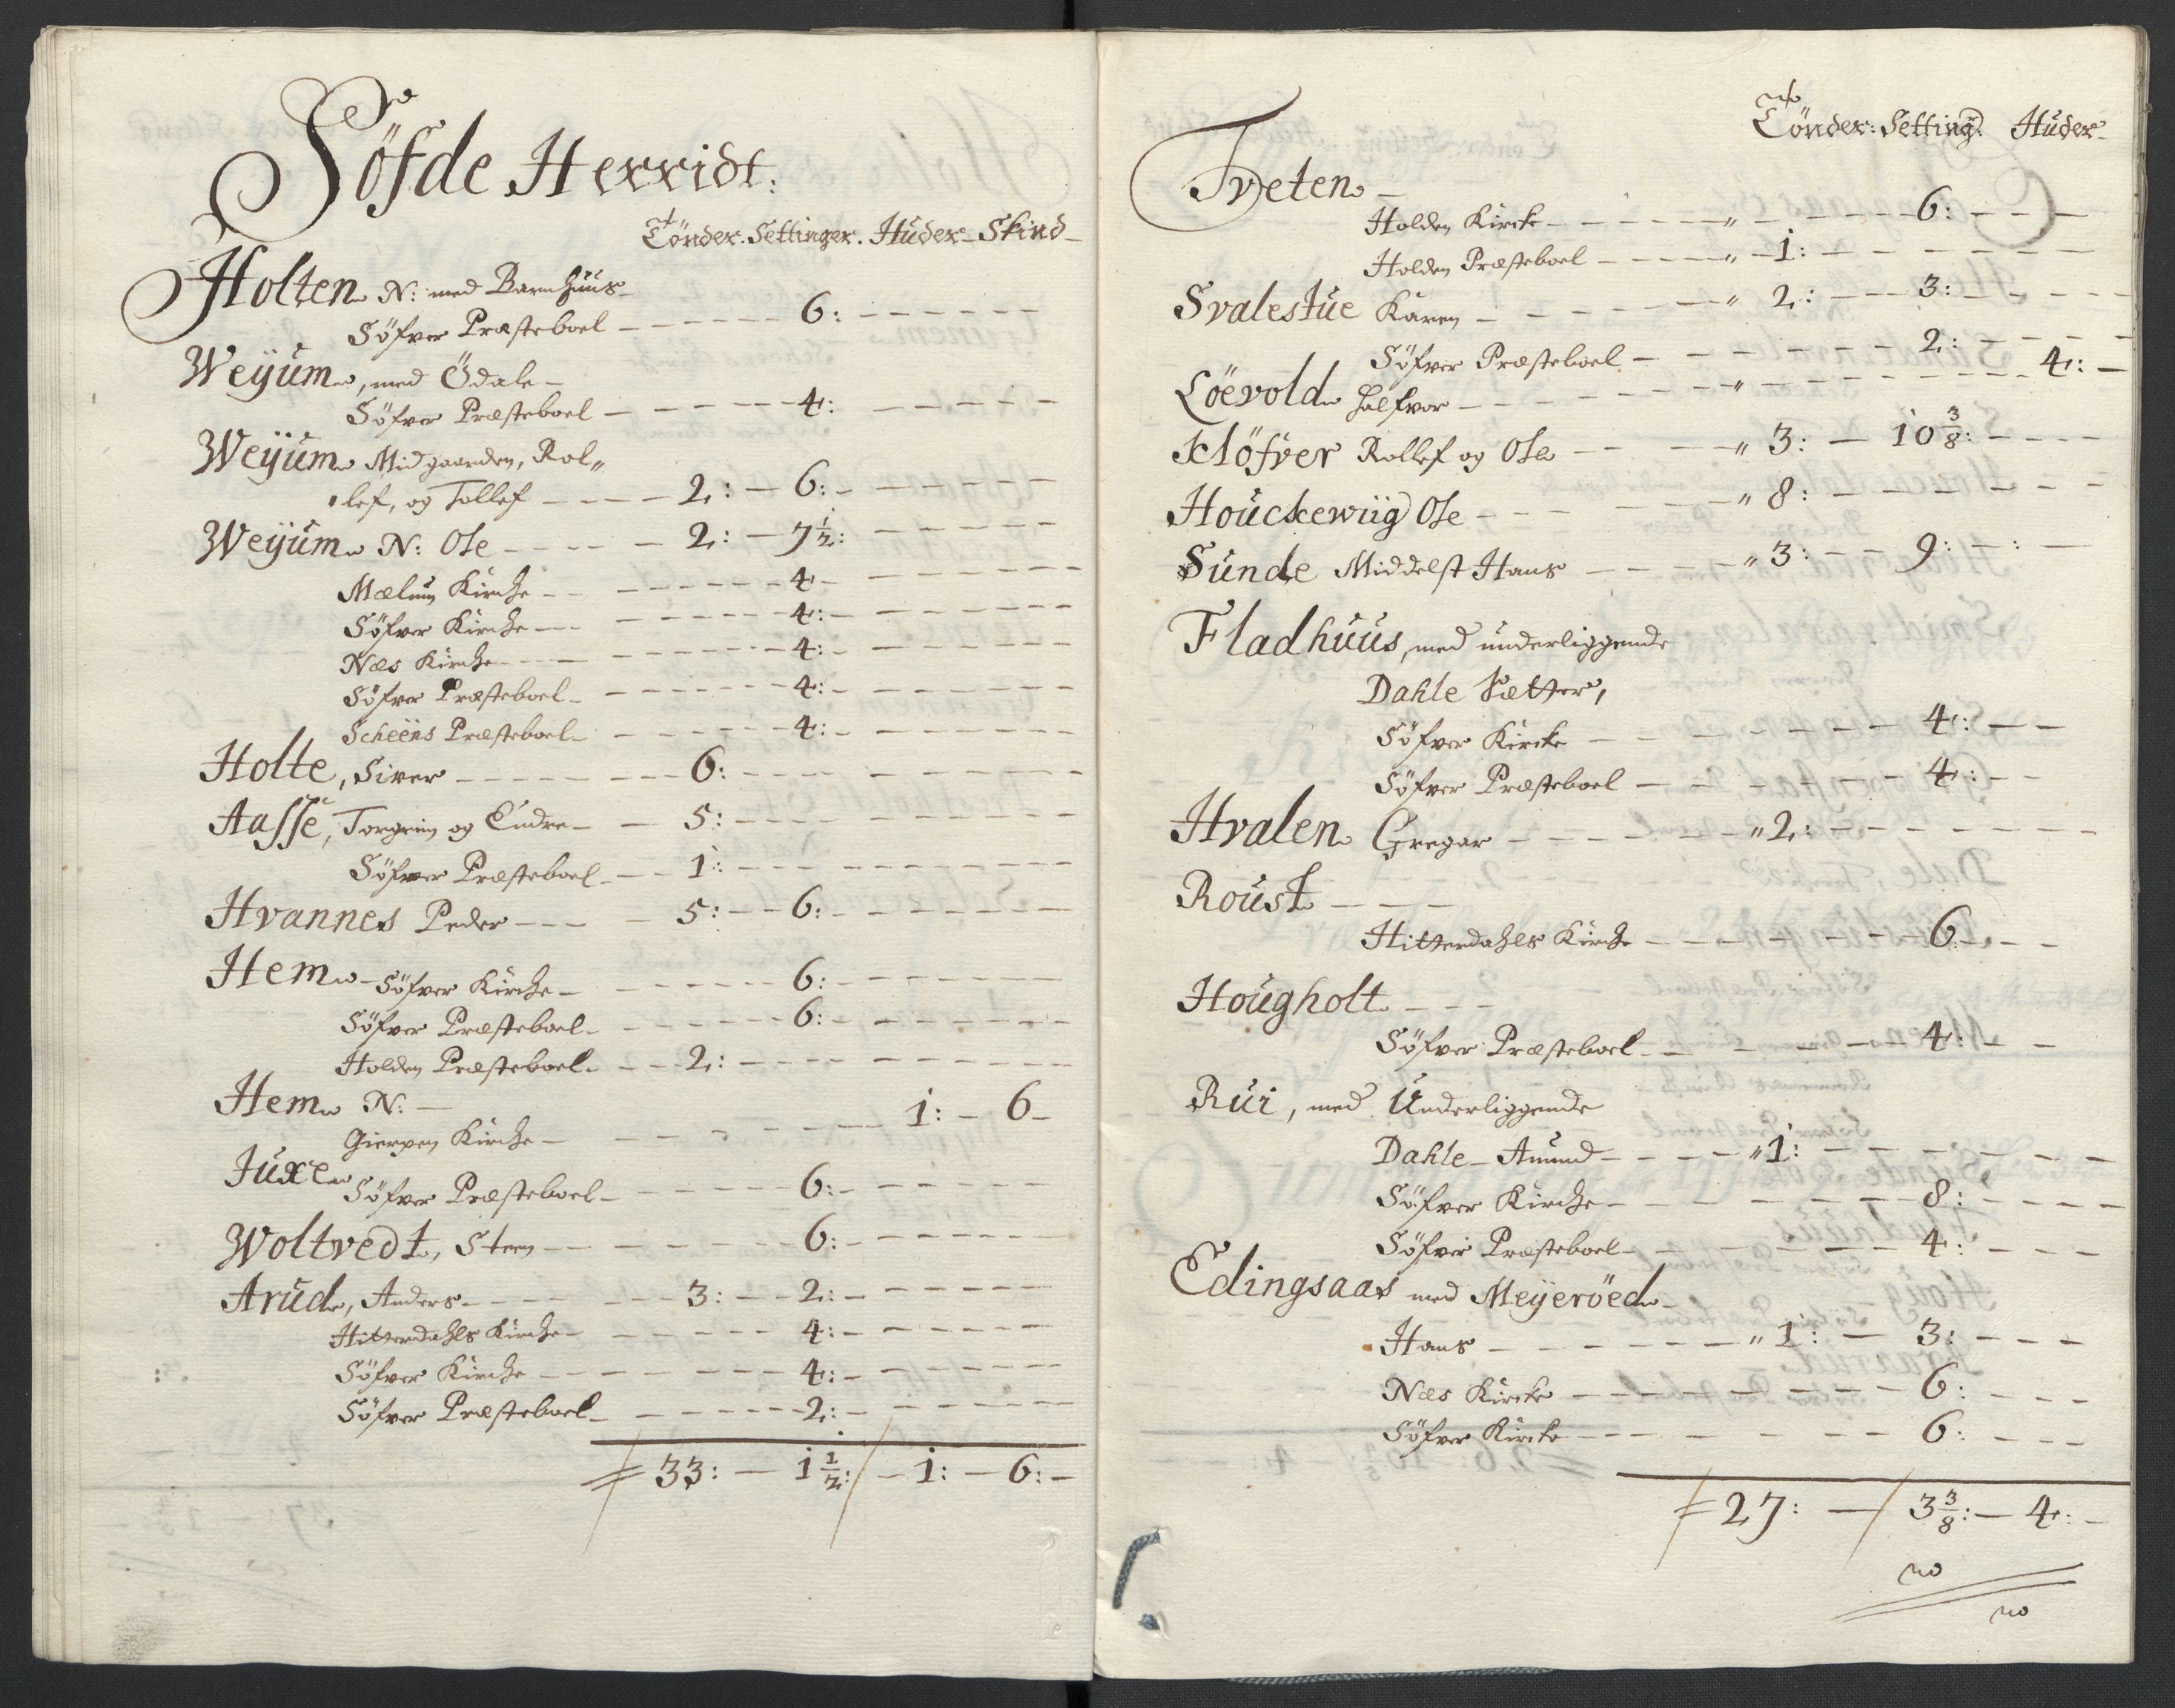 Söfde Herridt:
Tönder. Settinger. Huder Skind
Holten N: med Barnhuus
Söfver Præsteboel 6:
Weÿum, med Ödale
Söfver Præsteboel 4:
Weÿum Midgaarden, Rol„
„lef, og Tollef 2: 6:
Weÿum N: Ole 2: 7½:
Mælum Kirche 4
Söfver Kirche 4:
Næs Kirche 4:
Söfver Præsteboel 4:
Scheens Præsteboel 4:
Holte, Siver 6:
Aasse, Torgrim og Endre 5:
Söfver Præsteboel 1:
Hvannes Peder 5: 6:
Hem Söfver Kirche 6:
Söfver Præsteboel 6:
Holden Præsteboel 2:
Hem N:
Gierpen Kirche 1: 6
Juxe Söfver Præsteboel 6:
Woltvedt, Steen 6:
Arud, Anders 3: 2:
Hitterdahls Kirche 4:
Söfver Kirche 4:
Söfver Præsteboel 2:
33: 1½: 1: 6:
Tönder: Setting: Huder
Tveten
Holden Kirke „ 6:
Holden Præsteboel „ 1:
Svalestue Karen „ 2: 3:
Söfver Præsteboel 2:
Löevold Halfvor „ 4:
Klöfver Rollef og Ole „ 3: 10 3/8:
Houckewiig Ole „ 8:
Sunde Middelst Hans „ 3: 9:
Fladhuus, med underliggende
Dahle Sætter,
Söfver Kirke 4:
Söfver Præsteboel 4:
Hvalen Gregar „ 2:
Roust
Hitterdahls Kirche 6:
Hougholt
Söfver Præsteboel 4:
Rui, med Underliggende
Dahle Amund „ 1:
Söfver Kirche 8:
Söfver Præsteboel 4:
Edingsaas med Meyeröed
Hans „ 1: 3:
Næs Kirke 6:
Söfver Kirke 6:
27: 3 3/8: 4: